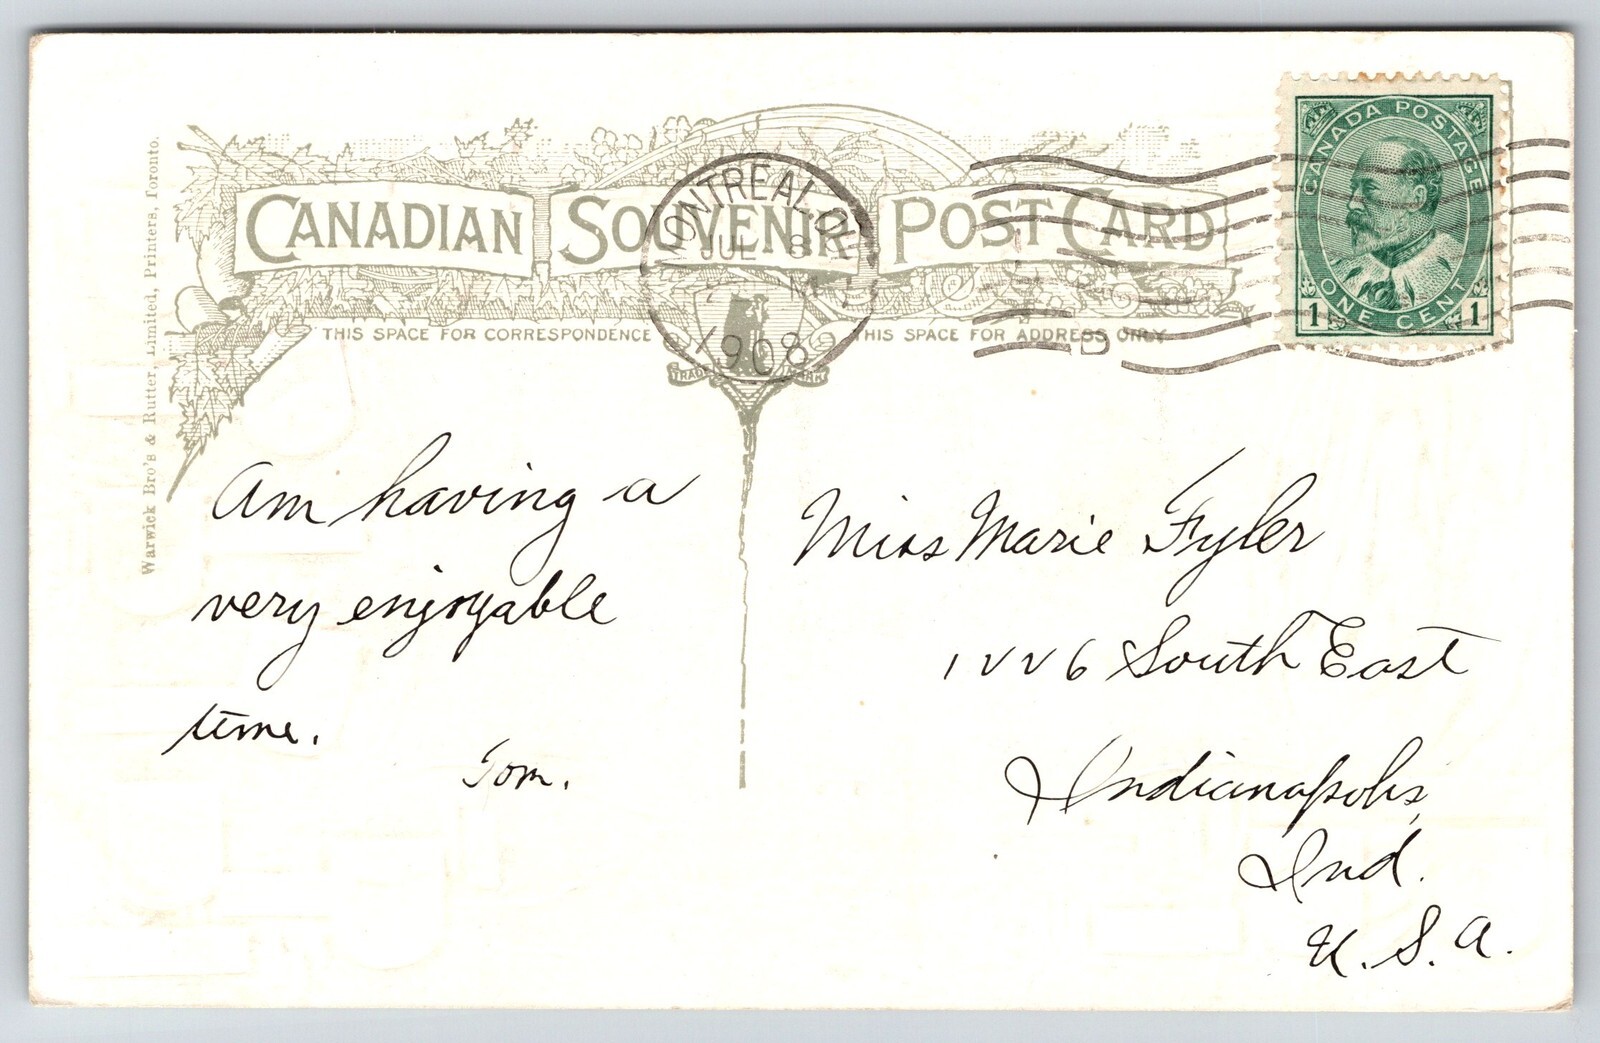 Warwick Bro's & Rutter, Limited, Printers, Toronto.
CANADIAN SOUVENIR POST CARD
MONTREAL, QUE
JUL 8
1908
THIS SPACE FOR CORRESPONDENCE
THIS SPACE FOR ADDRESS ONLY
TRADE MARK
CANADA POSTAGE
1 ONE CENT 1
Am having a
very enjoyable
time.
Tom.
Miss Marie Fyler
1226 South East
Indianapolis,
Ind.
U.S.A.